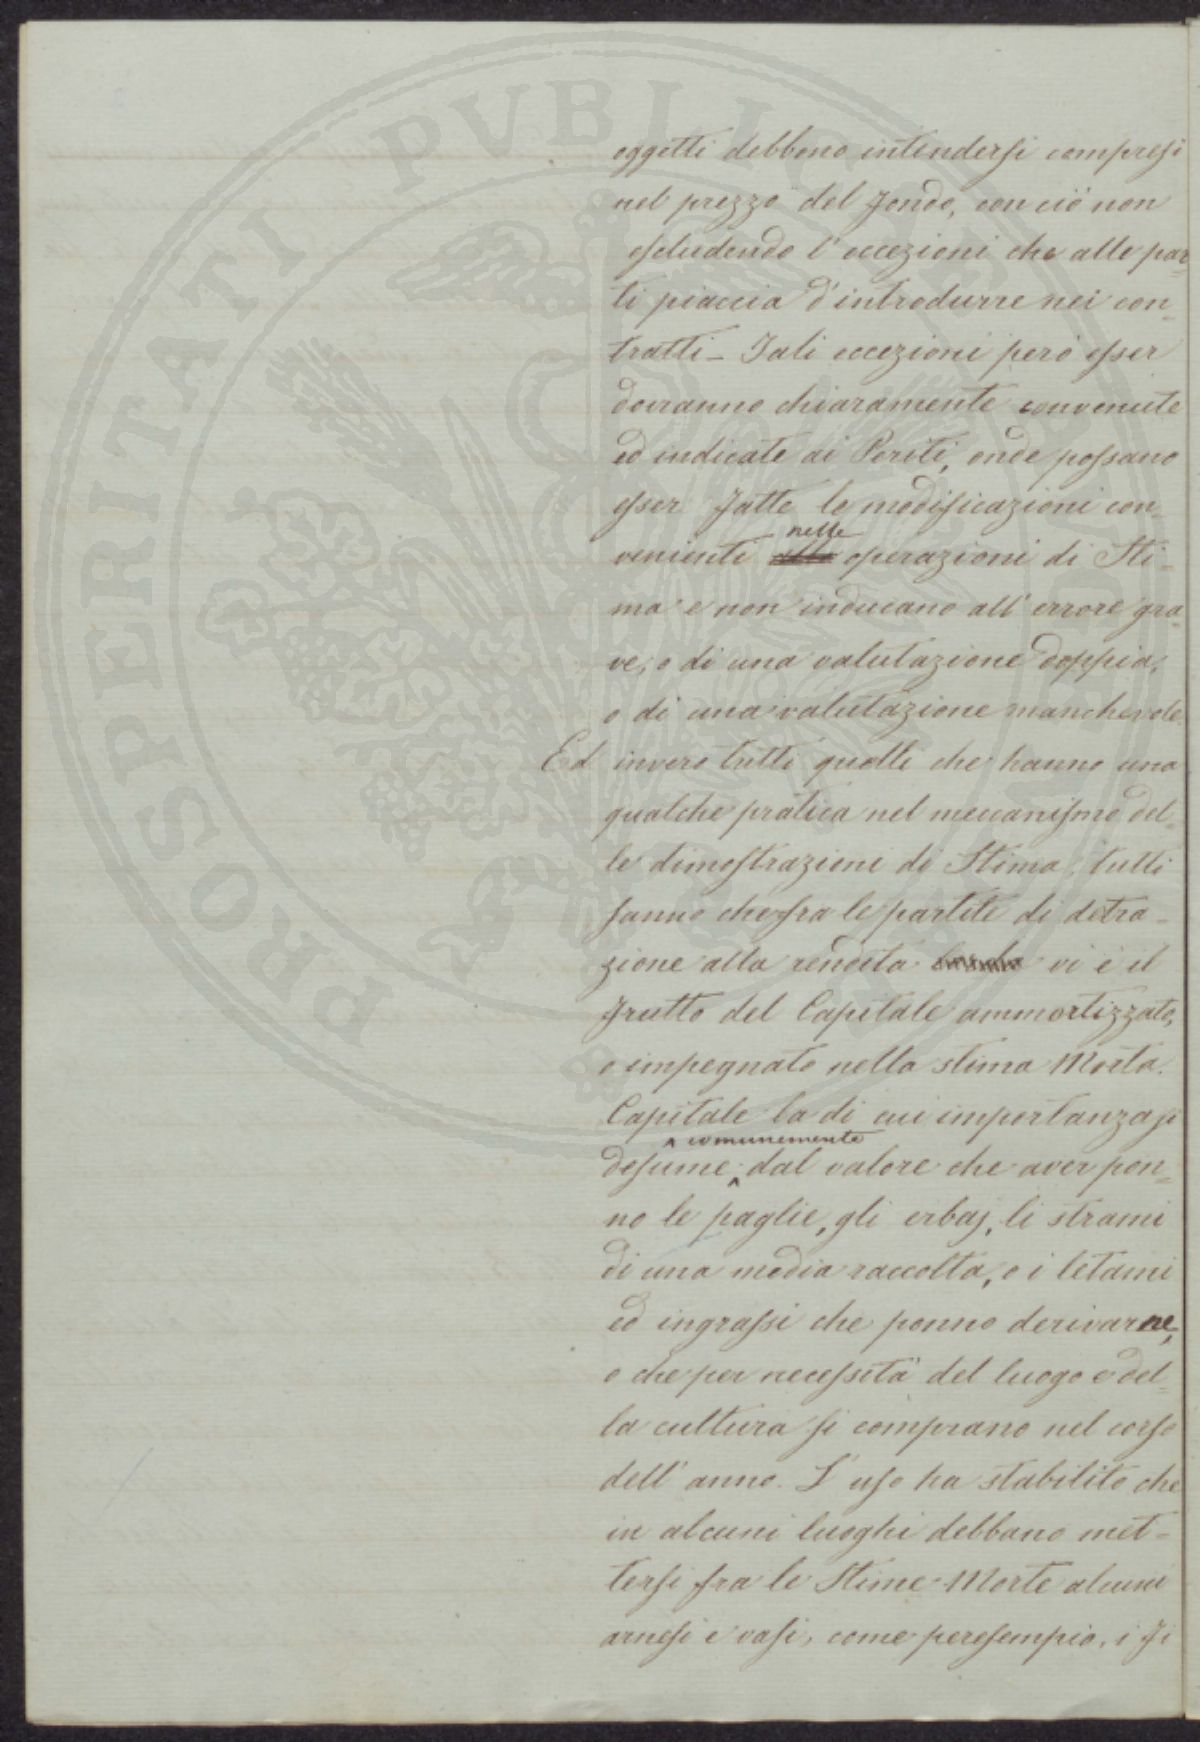 oggetti debbono intendersi compresi
nel prezzo del fondo, con ciò non
escludendo l'eccezioni che alle par=
ti piaccia d'introdurre nei con=
tratti_ Tali eccezioni però esser
dovranno chiaramente convenute
ed indicate ai Periti, onde possano
esser fatte le modificazioni con=
nelle
venienti operazioni di Sti=
ma e non inducano all'errore gra=
ve, o di una valutazione doppia,
o di una valutazione manchevole
Ed invero tutti quelli che hanno una
qualche pratica nel meccanismo del=
le dimostrazioni di Stima, tutti
sanno che fra le partite di detra=
zione alla rendita vi è il
frutto del Capitale ammortizzato,
o impegnato nella stima Morta.
Capitale la di cui importanza si
comunemente
desume dal valore che aver pon=
no le paglie, gli erbaj, li strami
di una media raccolta, o i letami
ed ingrassi che ponno derivarne,
o che per necessità del luogo e del=
la cultura si comprano nel corso
dell'anno. L'uso ha stabilito che
in alcuni luoghi debbano met=
tersi fra le Stime Morte alcuni
arnesi e vasi, come per esempio, i ti
PROSPERITATI PUBLICAE